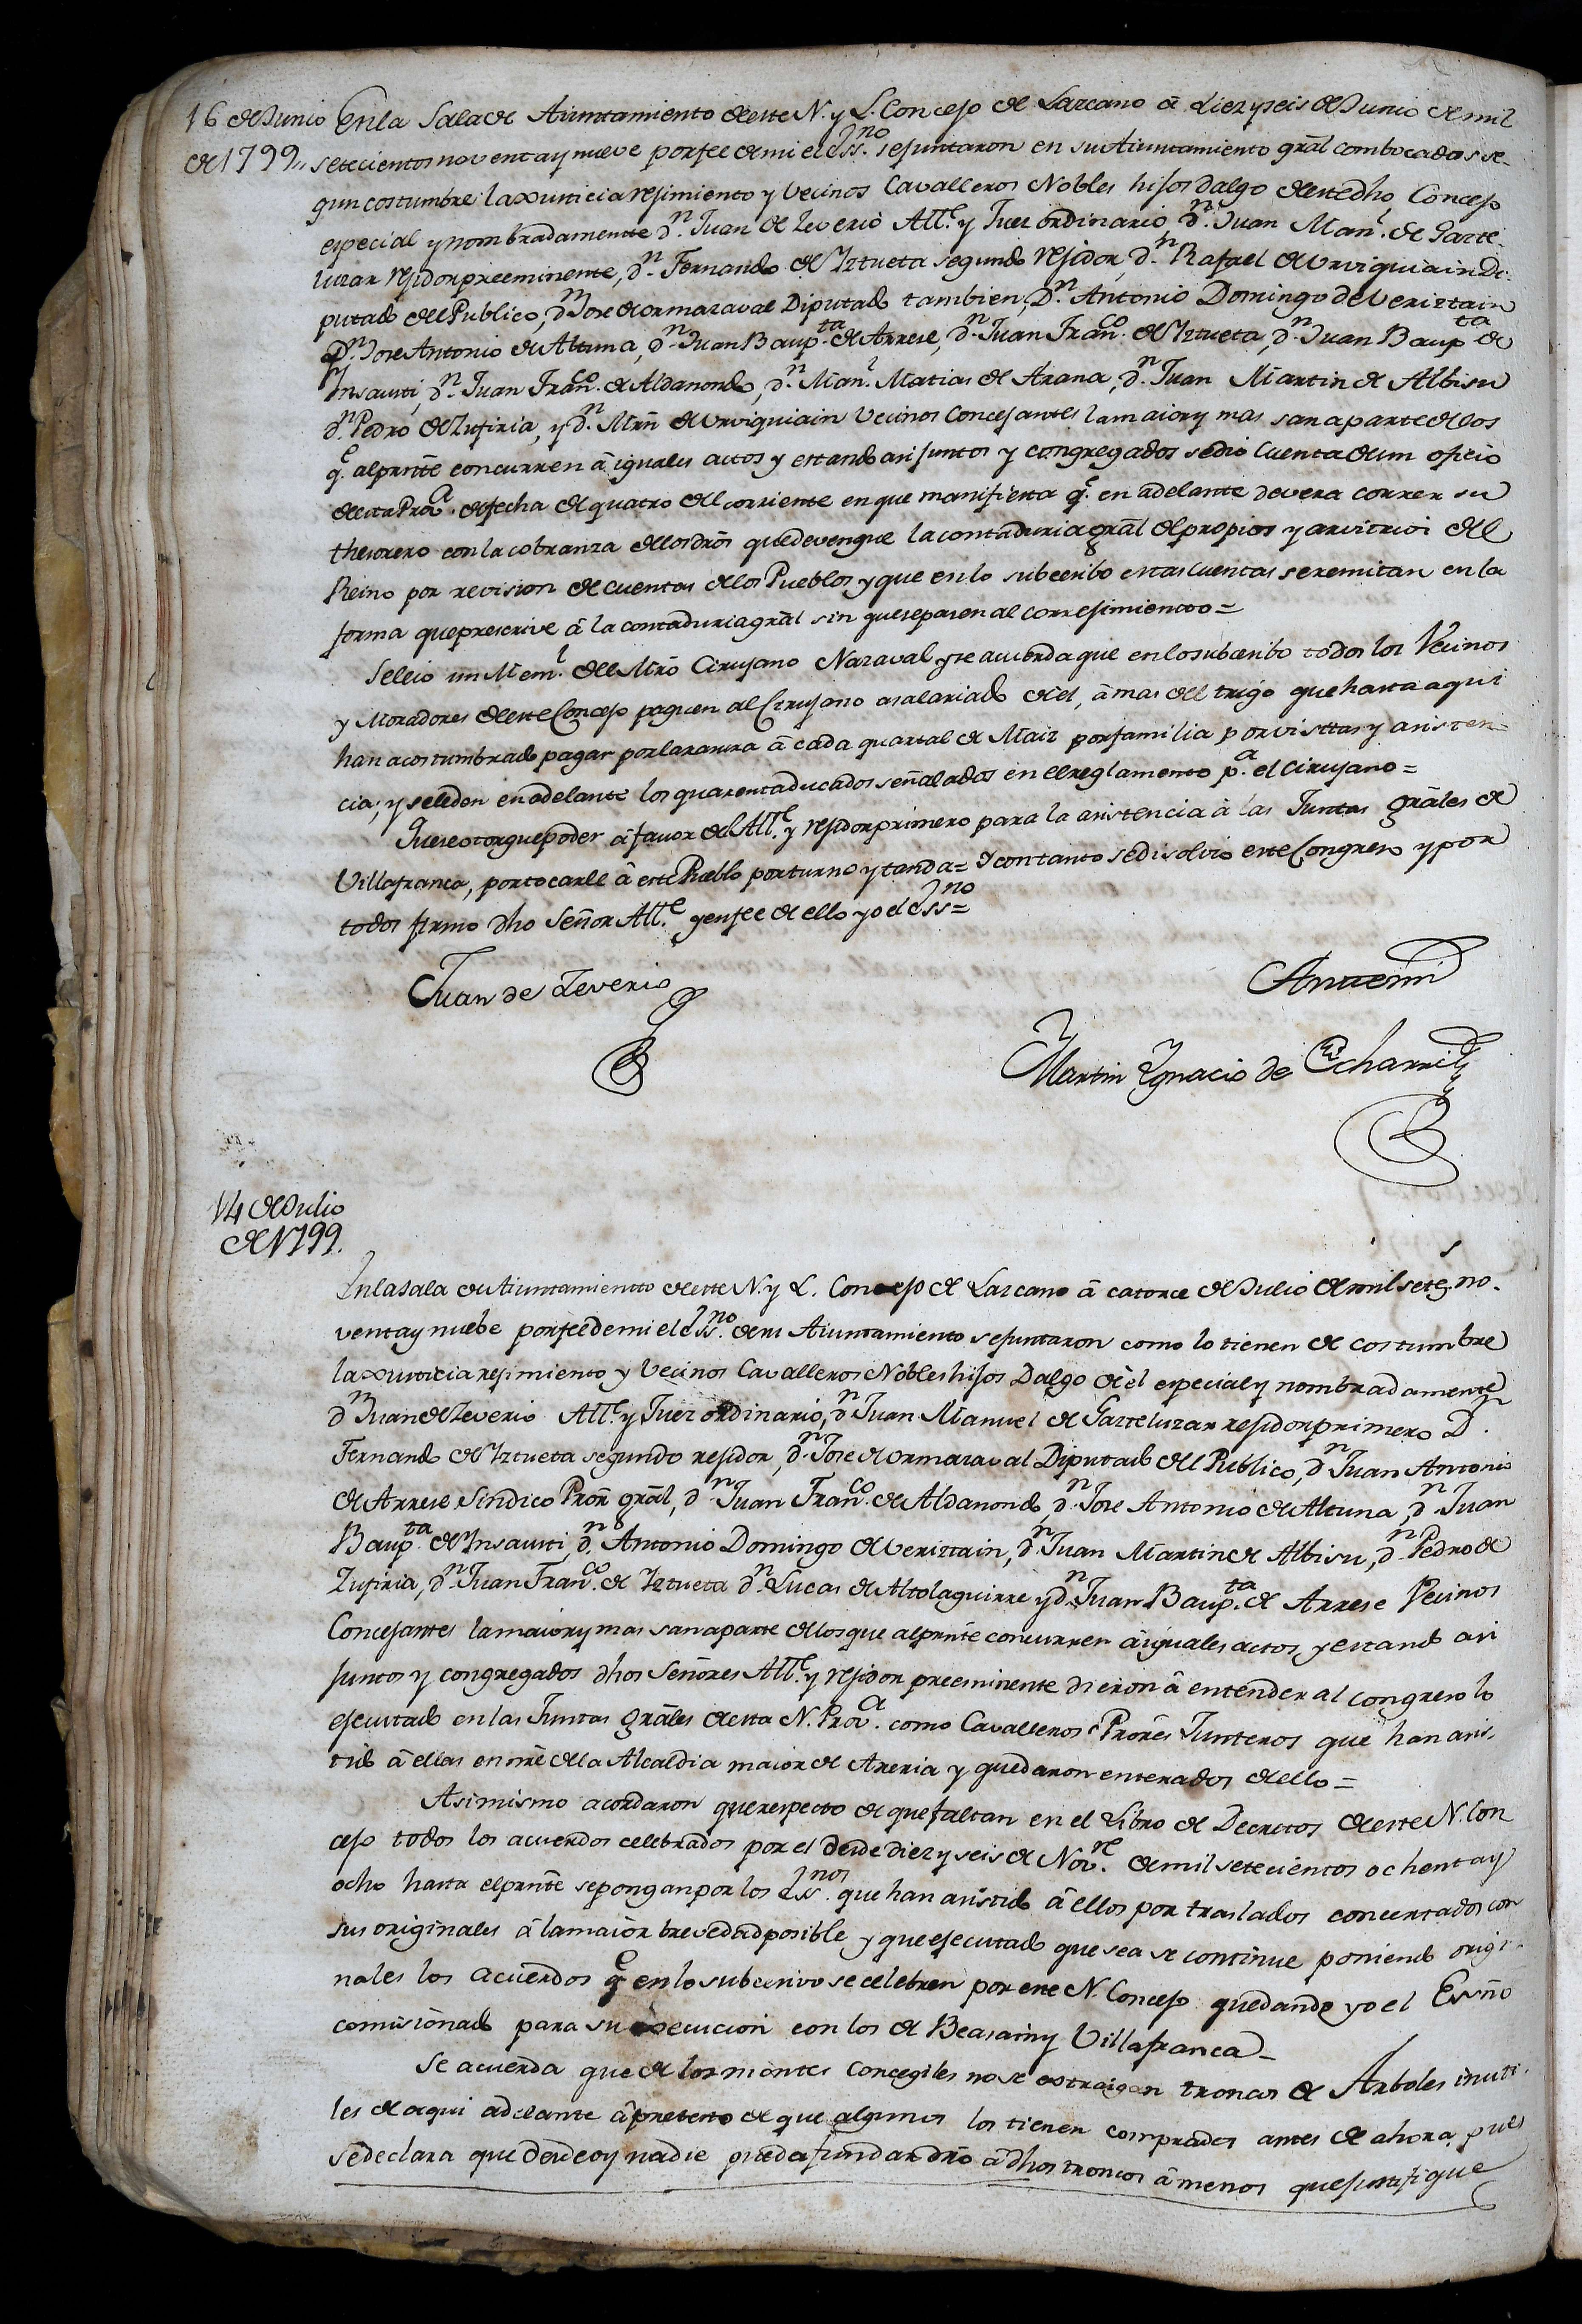 16 de Junio
de 1799,,
En la Sala de Aiuntamiento de este N. y L. Concejo de Lazcano â diez y seis de Junio de mil
setecientos noventa y nueve por fee de mi el Ess.no se juntaron en su Aiuntamiento grãl combocados se-
gun costumbre la Xusticia rejimiento y Vecinos Cavalleros Nobles hijos dalgo de este dho Concejo
especial y nombradamente d.n Juan de Zeverio All.e y Juez ordinario, d.n Juan Man.l de Garte-
luzar rejidor preeminente, d.n Fernando de Yztueta segundo rejidor, d.n Rafael de Urviquiain Di-
putado del Publico, d.n Jose de Ormazaval Diputado tambien, D.n Antonio Domingo de Veriztain
D.n Jose Antonio de Altuna, d.n Juan Baup.ta de Arrese, d.n Juan Fran.co de Yztueta, d.n Juan Baup.ta de
Ynsausti, d.n Juan Fran.co de Aldanondo, d.n Man.l Matias de Arana, d.n Juan Martin de Albisu
d.n Pedro de Zufiria, y d.n Mrñ de Urviquiain Vecinos Concejantes la maior y mas sana parte de los
q.e al prñte concurren â iguales actos y estando asi juntos y congregados se dio cuenta de un oficio
de esta Prov.a de fecha de quatro del corriente en que manifiesta q.e en adelante devera correr su
thesorero con la cobranza de los drõs que devengue la contaduria grãl de propios y arvitrios del
Reino por revision de cuentas de los Pueblos y que en lo subcesibo estas cuentas se remitan en la
forma que prescrive â la contaduria grãl sin que se pasen al correjimiento =
Se leio un Mem.l del Mrõ Cirujano Nazaval y se acuerda que en lo subcesibo todos los Vecinos
y Moradores de este Concejo paguen al Cirujano asalariado de el, â mas del trigo que hasta aqui
han acostumbrado pagar por la rasura â cada quartal de Maiz por familia por visttas y asisten-
cia; y se le den en adelante los quarenta ducados señalados en el reglamento p.a el Cirujano =
Que se otorgue poder â favor del All.e y rejidor primero para la asistencia à las Juntas grãles de
Villafranca, por tocarle â este Pueblo por turno y tanda = Y con tanto se disolvio este Congreso y por
todos firmo dho Señor All.e y en fee de ello yo el Ess.no =
Juan de Zeverio
Antemi
Martin Ygnacio de Echarri
14 de Julio
de 1799.
En la sala de Aiuntamientto de este N. y L. Concejo de Lazcano â catorce de Julio de mil setes. no-
venta y nuebe por fee de mi el Ess.no de su Aiuntamiento se juntaron como lo tienen de costumbre
la Xusticia rejimiento y Vecinos Cavalleros Nobles hijos Dalgo de el especial y nombradamente
d.n Juan de Zeverio All.e y Juez ordinario, d.n Juan Manuel de Garteluzar rejidor primero D.n
Fernando de Yztueta segundo rejidor, d.n Jose de Ormazaval Diputado del Publico, d.n Juan Antonio
de Arrese Sindico Prõr grãl, d.n Juan Fran.co de Aldanondo, d.n Jose Antonio de Altuna, d.n Juan
Baup.ta de Ynsausti, d.n Antonio Domingo de Veriztain, d.n Juan Martin de Albisu, d.n Pedro de
Zufiria, d.n Juan Fran.co de Yztueta d.n Lucas de Altolaguirre y d.n Juan Baup.ta de Arrese Vecinos
Concejantes la maior y mas sana parte de los que al prñte concurren â iguales actos, y estando asi
juntos y congregados dhos Señores All.e y rejidor preeminente dieron â entender al congreso lo
ejecutado en las Juntas grãles de esta N. Prov.a como Cavalleros Prõres Junteros que han asis-
tido â ellas en nrẽ de la Alcaldia maior de Areria y quedaron enterados de ello =
Asimismo acordaron que respecto de que faltan en el Libro de Decretos de este N. Con
cejo todos los acuerdos celebrados por el desde diez y seis de Nov.re de mil setecientos ochenta y
ocho hasta el prñte se pongan por los Ess.nos que han asistido â ellos por traslados concertados con
sus originales â la maior brevedad posible y que ejecutado que sea se continue poniendo origi-
nales los acuerdos q.e en lo subcesivo se celebren por este N. Concejo quedando yo el Essño
comisionado para su execucion con los de Beasain y Villafranca =
Se acuerda que de los montes concegiles no se extraigan troncos de Arboles inuti-
les de aqui adelante â pretexto de que algunos los tienen comprados antes de ahora, pues
se declara que desde oy nadie pueda fundar drõ â dhos troncos â menos que justifique